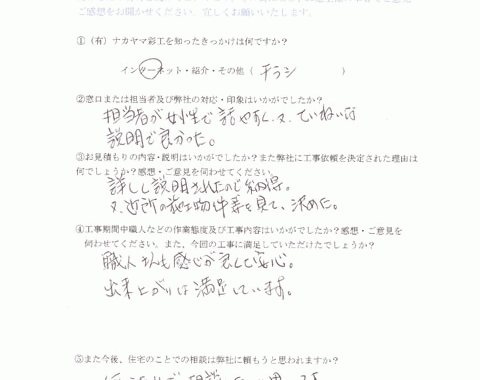 ご感想をお聞かせください。宜しくお願いいたします。
①（有）ナカヤマ彩工を知ったきっかけは何ですか？
インターネット・紹介・その他（ チラシ ）
②窓口または担当者及び弊社の対応・印象はいかがでしたか？
担当者が女性で話やすく、又、ていねいな
説明で良かった。
③お見積もりの内容・説明はいかがでしたか？また弊社に工事依頼を決定された理由は
何でしょうか？感想・ご意見を伺わせてください
詳しく説明されたので納得。
又、近所の施工物件等を見て、決めた。
④工事期間中職人などの作業態度及び工事内容はいかがでしたか？感想・ご意見を
伺わせてください。また、今回の工事に満足していただけたでしょうか？
職人さんも感じが良くて安心。
出来上がりは満足しています。
⑤また今後、住宅のことでの相談は弊社に頼もうと思われますか？